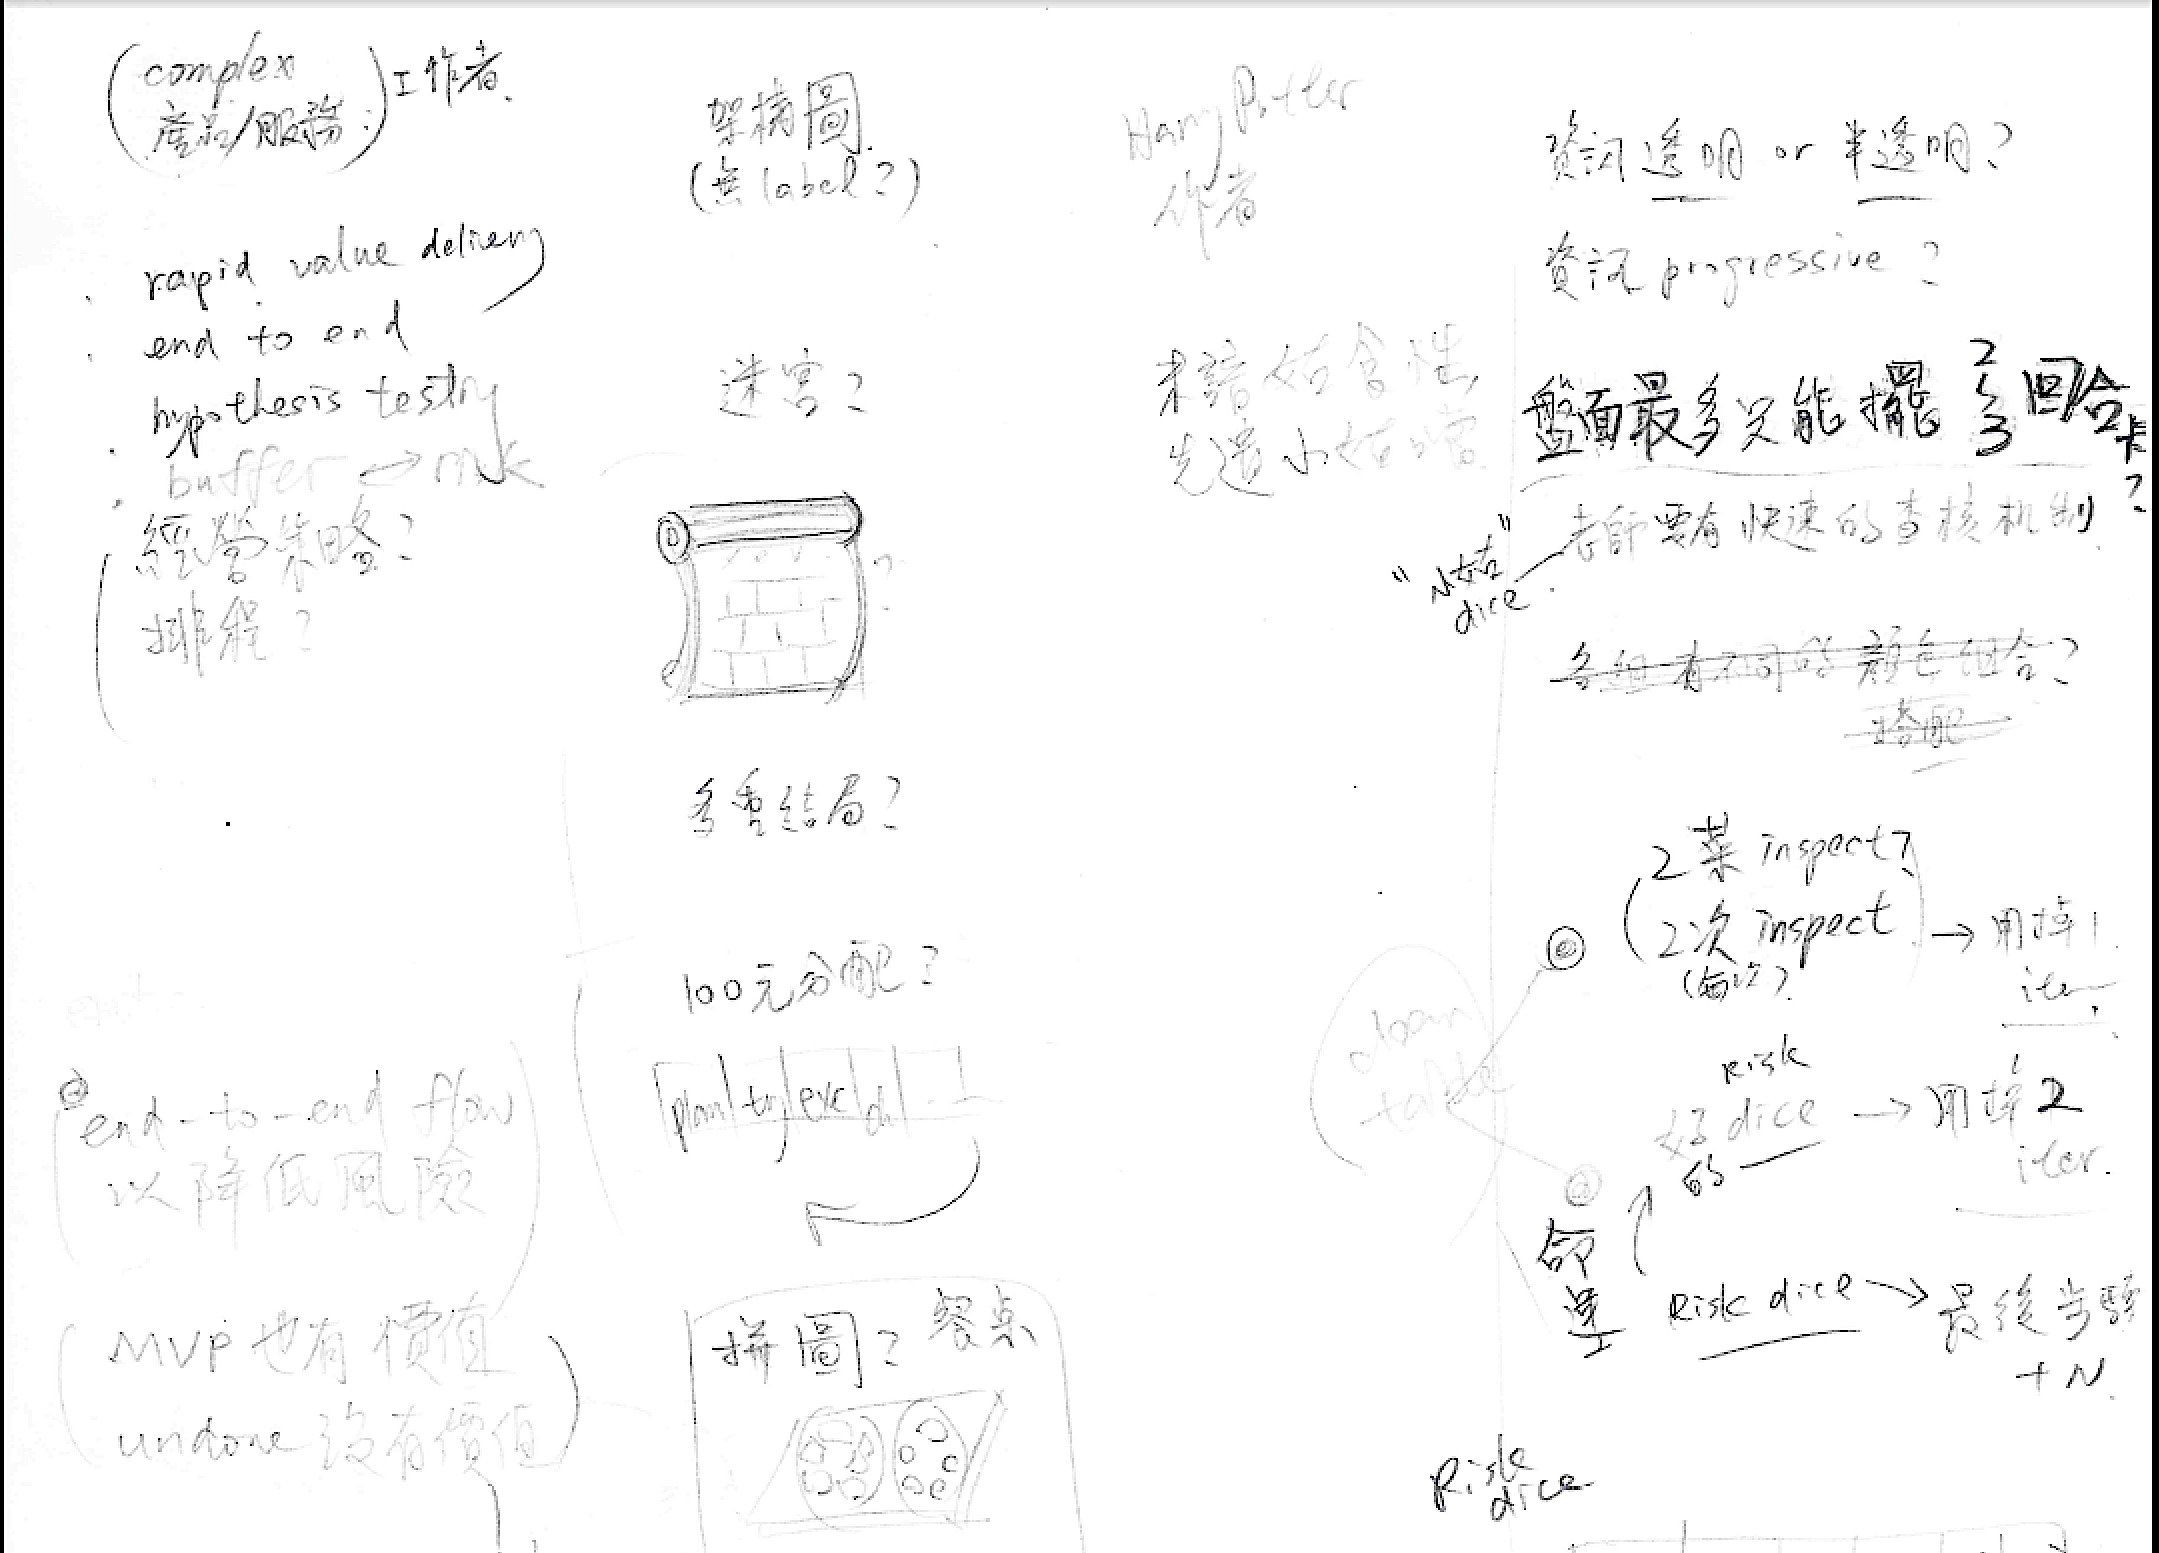 complex
產品/服務
工作者
rapid value delivery
end to end
hypothesis testing
buffer ↔ risk
經營策略?
排程?
end-to-end flow
以降低風險
MVP 也有價值
undone 沒有價值
架構圖
(無 label?)
迷宮?
?
多重結局?
100元分配?
plan try exe
拼圖? 餐点
Harry Potter
作者
先造小
資訊透明 or 半透明?
資訊 progressive?
盤面最多只能擺 2~3 回合卡?
老師要有快速的查核机制
dice
各組有不同的顏色組合?
搭配
2菜 inspect
2次 inspect → 用掉1
iter.
Risk
好 dice → 用掉2
的 iter.
命運
Risk dice → 最後步驟
+N
Risk
dice